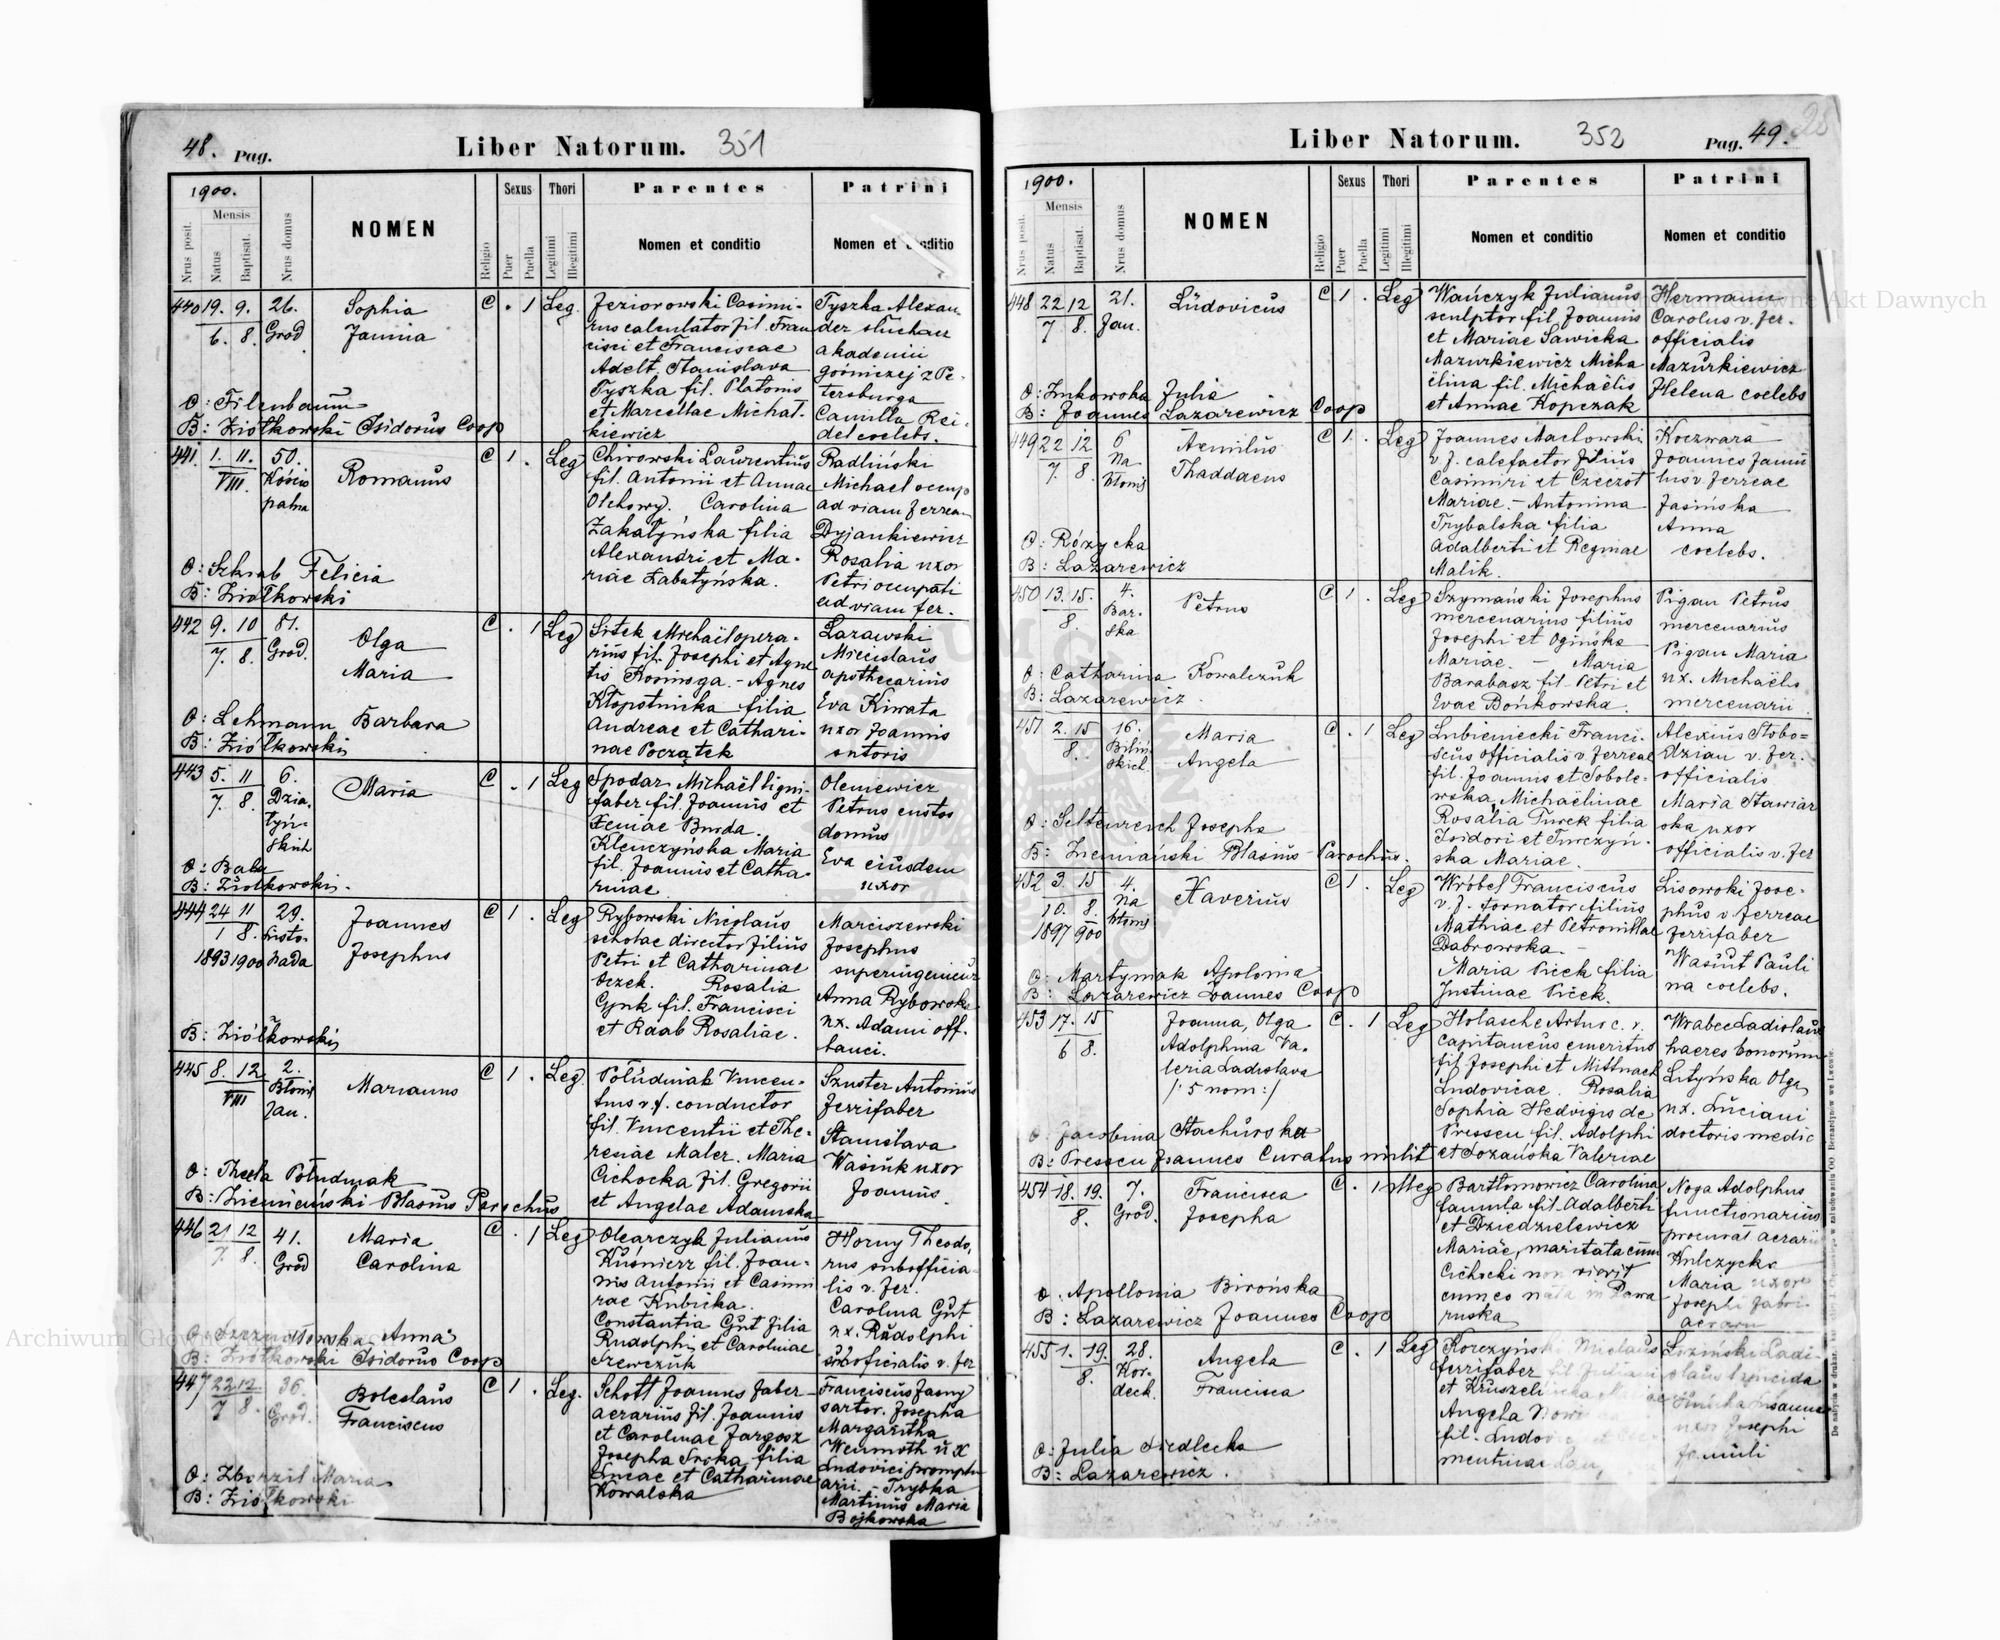 48. Pag.
Liber Natorum. 351
1900.
Nrus posit.
Mensis
Natus
Baptisat.
Nrus domus
NOMEN
Religio
Sexus
Puer
Puella
Thori
Legitimi
Illegitimi
Parentes
Nomen et conditio
Patrini
Nomen et conditio
440 19. 9. 26. Sophia C . 1 Leg. Jeziorowski Casimi- Tyszka Alexan-
6. 8. Grod Janina rus calculator fil. Fran der słuchacz
cisci et Franciscae akademii
Adelt, Stanislava górniczej z Pe-
Tyszka fil. Platonis tersburga
O: Filenbaum et Marcellae Michał- Camilla Rei-
B: Ziółkowski Isidorus Coop kiewicz del coelebs.
441. 1. 11. 50. Romanus C 1 . Leg Chirowski Laurentius Radliński
VIII. Kościu fil. Antonii et Annae Michael occup
patna Olchowy. Carolina ad viam ferream
Zakatyńska filia Dyjankiewicz
Alexandri et Ma- Rosalia uxor
O: Szkrab Felicia riae Łabatyńska. Petri occupati
B: Ziółkowski ad viam fer.
442 9. 10 81. Olga C . 1 Leg Sitek Michaël opera- Lazawski
7. 8. Grod. Maria rius fil. Josephi et Agne Miecislaus
tis Kosmoga. - Agnes apothecarius
Kłopotnicka filia Eva Kiwata
O: Lehmann Barbara Andreae et Cathari- uxor Joannis
B: Ziółkowski nae Początek sutoris
443 5. 11 6. Maria C . 1 Leg Spodar Michaël ligni- Oleniewicz
7. 8. Dzia- faber fil. Joannis et Petrus custos
łyń- Xeniae Burda. domus
skich Kleuczyńska Maria Eva eiusdem
O: Bala fil. Joannis et Catha- uxor
B: Ziółkowski. rinae
444 24 11 29. Joannes C 1 . Leg Rybowski Nicolaus Marciszewski
1 8. Listo- Josephus scholae director filius Josephus
1893 1900 pada Petri et Catharinae superingenieur
Oczek. Rosalia Anna Rybowska
Gynk fil. Francisci ux. Adami off.
B: Ziółkowski et Raab Rosaliae. banci.
445 8. 12 2. Marianus C 1 . Leg. Południak Vincen- Szuster Antonius
VIII Błonie tius v. f. conductor ferrifaber
Jan. fil. Vincentii et The- Stanislava
resiae Maler. Maria Wasiuk uxor
O: Thecla Południak Cichocka fil. Gregorii Joannis.
B: Ziemiański Blasius Parochus et Angelae Adamska
446 21 12 41. Maria C . 1 Leg Olearczyk Julianus Horny Theodo-
7. 8. Grod Carolina Kuśnierz fil. Joan- rus subofficia-
nis Antonii et Casimi lis v. fer.
rae Kubicka. Carolina Gut
Constantia Gut filia ux. Rudolphi
O: Anna Rudolphi et Carolinae suboficialis v. fer
B: Ziółkowski Isidorus Coop Szewczuk
447 22 12 36. Boleslaus C 1 . Leg. Schott Joannes faber Franciscus Jasny
7 8. Grod. Franciscus aerarius fil. Joannis sartor. Josepha
et Carolinae Jargosz Margaritha
Josepha Sroka filia Weumoth ux
Lucae et Catharinae Ludovici promptu
O: Zborzil Maria Kowalska arii. - Trybka
B: Ziółkowski Martinus Maria
Bojkowska
Liber Natorum. 352
Pag. 49.
1900.
Nrus posit.
Mensis
Natus
Baptisat.
Nrus domus
NOMEN
Religio
Sexus
Puer
Puella
Thori
Legitimi
Illegitimi
Parentes
Nomen et conditio
Patrini
Nomen et conditio
448 22 12 21. Ludovicus C 1 . Leg Wańczyk Julianus Hermann
7 8. Jan. sculptor fil Joannis Carolus v. fer.
et Mariae Sawicka officialis
Mazurkiewicz Micha Mazurkiewicz
O: Zukowska Julia ëlina fil. Michaëlis Helena coelebs
B: Joannes Lazarewicz Coop et Annae Kopczak
449 22 12 6 Aemilus C 1 . Leg Joannes Machowski Koczwara
7. 8. Na Thaddaeus v. f. calefactor filius Joannes famu
błonie Casimiri et Czeczot lus v. ferreae
Mariae. - Antonina Jasińska
O: Różycka Trybalska filia Anna
B: Lazarewicz Adalberti et Reginae coelebs.
Malik.
450 13. 15. 4. Petrus C 1 . Leg Szymański Josephus Pigan Petrus
8. Bar- mercenarius filius mercenarius
ska Josephi et Ogińska Pigan Maria
O: Catharina Kowalczuk Mariae. - Maria ux. Michaëlis
B: Lazarewicz. Barabasz fil. Petri et mercenarii
Evae Bońkowska.
451 2. 15 16. Maria C . 1 Leg Lubieniecki Franci- Alexius Słobo-
8. Biliń- Angela scus officialis v. ferreae dzian v. fer.
skich. fil. Joannis et Sobole- officialis
wska Michaëlinae Maria Stawiar
O: Seltenreich Josepha Rosalia Turek filia ska uxor
B: Ziemiański Blasius Parochus. Isidori et Turczyń- officialis v. fer
ska Mariae.
452 3. 15 4. Xaverius C 1 . Leg Wróbel Franciscus Lisowski Jose-
10. 8. Na v. f. tornator filius phus v. ferreae
1897 900 błonie Mathiae et Petronillae ferrifaber
Dąbrowska. - Wasiut Pauli
O: Martyniak Apolonia Maria Picek filia na coelebs.
B: Lazarewicz Joannes Coop Justinae Picek.
453 17. 15 Joanna, Olga C . 1 Leg Holasche Artur c. r. Wrabec Ladislaus
6 8. Adolphina Va- capitaneus emeritus haeres bonorum
leria Ladislava fil Josephi et Mittnach Lityńska Olga
/: 5 nom :/ Ludovicae. Rosalia ux. Luciani
O: Jacobina Stachurska Sophia Hedvigis de doctoris medic
B: Pressen Joannes Curatus milit Pressen fil. Adolphi
et Łozańska Valeriae
454 18. 19. 7. Francisca C . 1 illeg Bartłomowicz Carolina Noga Adolphus
8. Grod. Josepha famula fil. Adalberti functionarius
et Dziedzielewicz procurat. aerarii
Mariae, maritata cum Kulczycka
O. Apollonia Birońska Cichocki non vivit Maria uxor
B: Lazarewicz Joannes Coop cum eo nata in Rawa Josephi fabri
ruska aerarii
455 1. 19. 28. Angela C . 1 Leg Korczyński Nicolaus Łoziński Ladi-
8. Kor- Francisca ferrifaber fil Juliani slaus lapicida
deck. et Kruszelnicka Susanna
Angela uxor Josephi
O: Julia Siedlecka fil. Ludov famuli
B: Lazarewicz.
Do nabycia w drukar. we Lwowie.
Archiwum Główne Akt Dawnych